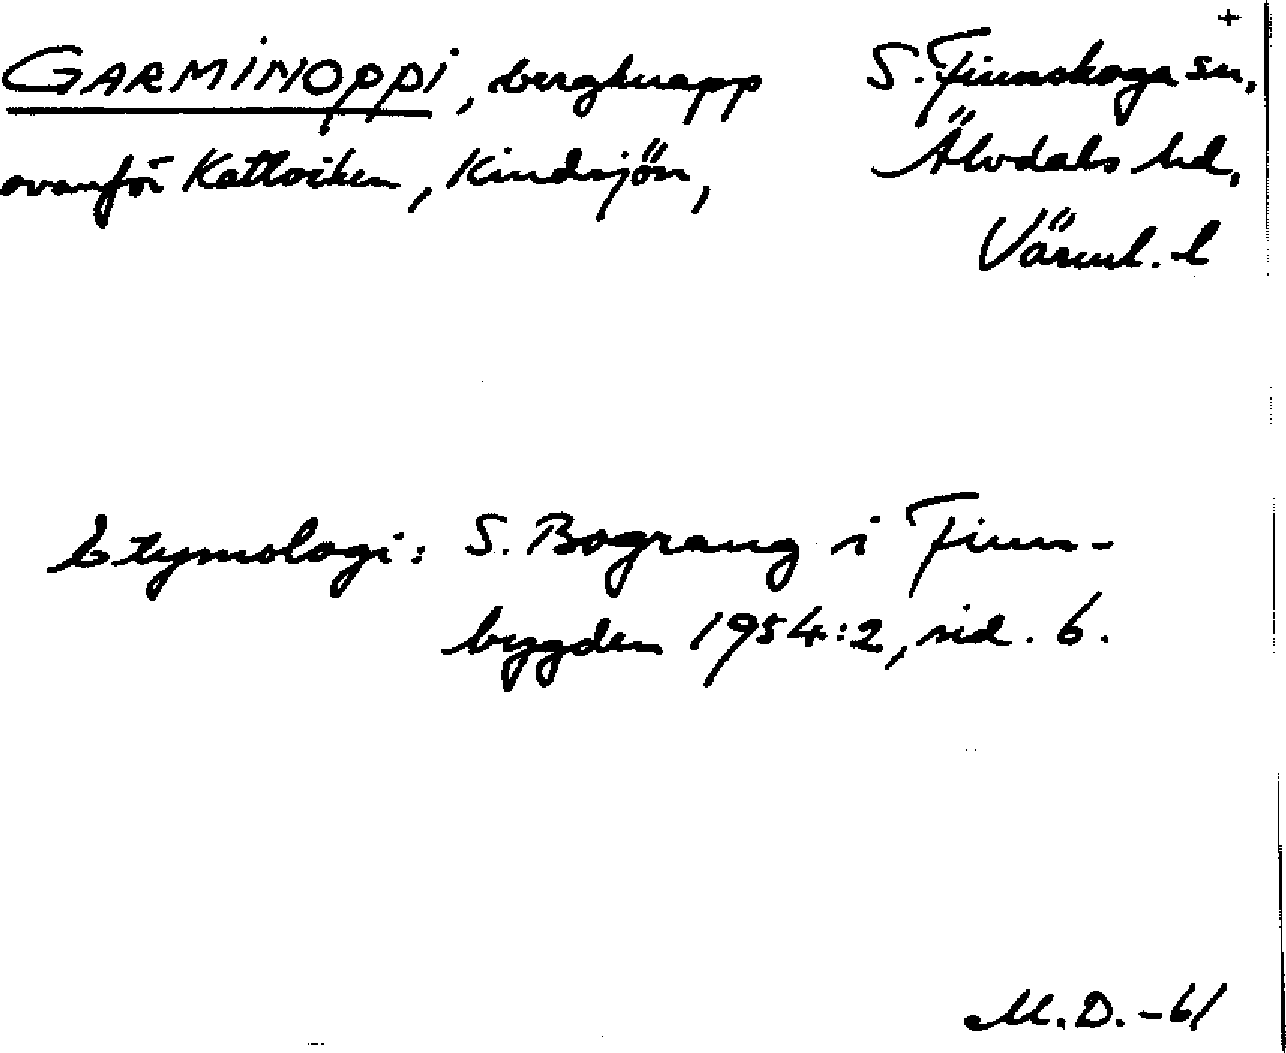 +
GARMINOPPI, bergknapp S. Finnskoga sn,
ovanför Kattviken, Kindsjön, Älvdals hd,
Värml. l
Etymologi: S. Bograng i Finn-
bygden 1954:2, sid. 6.
M.D. -61